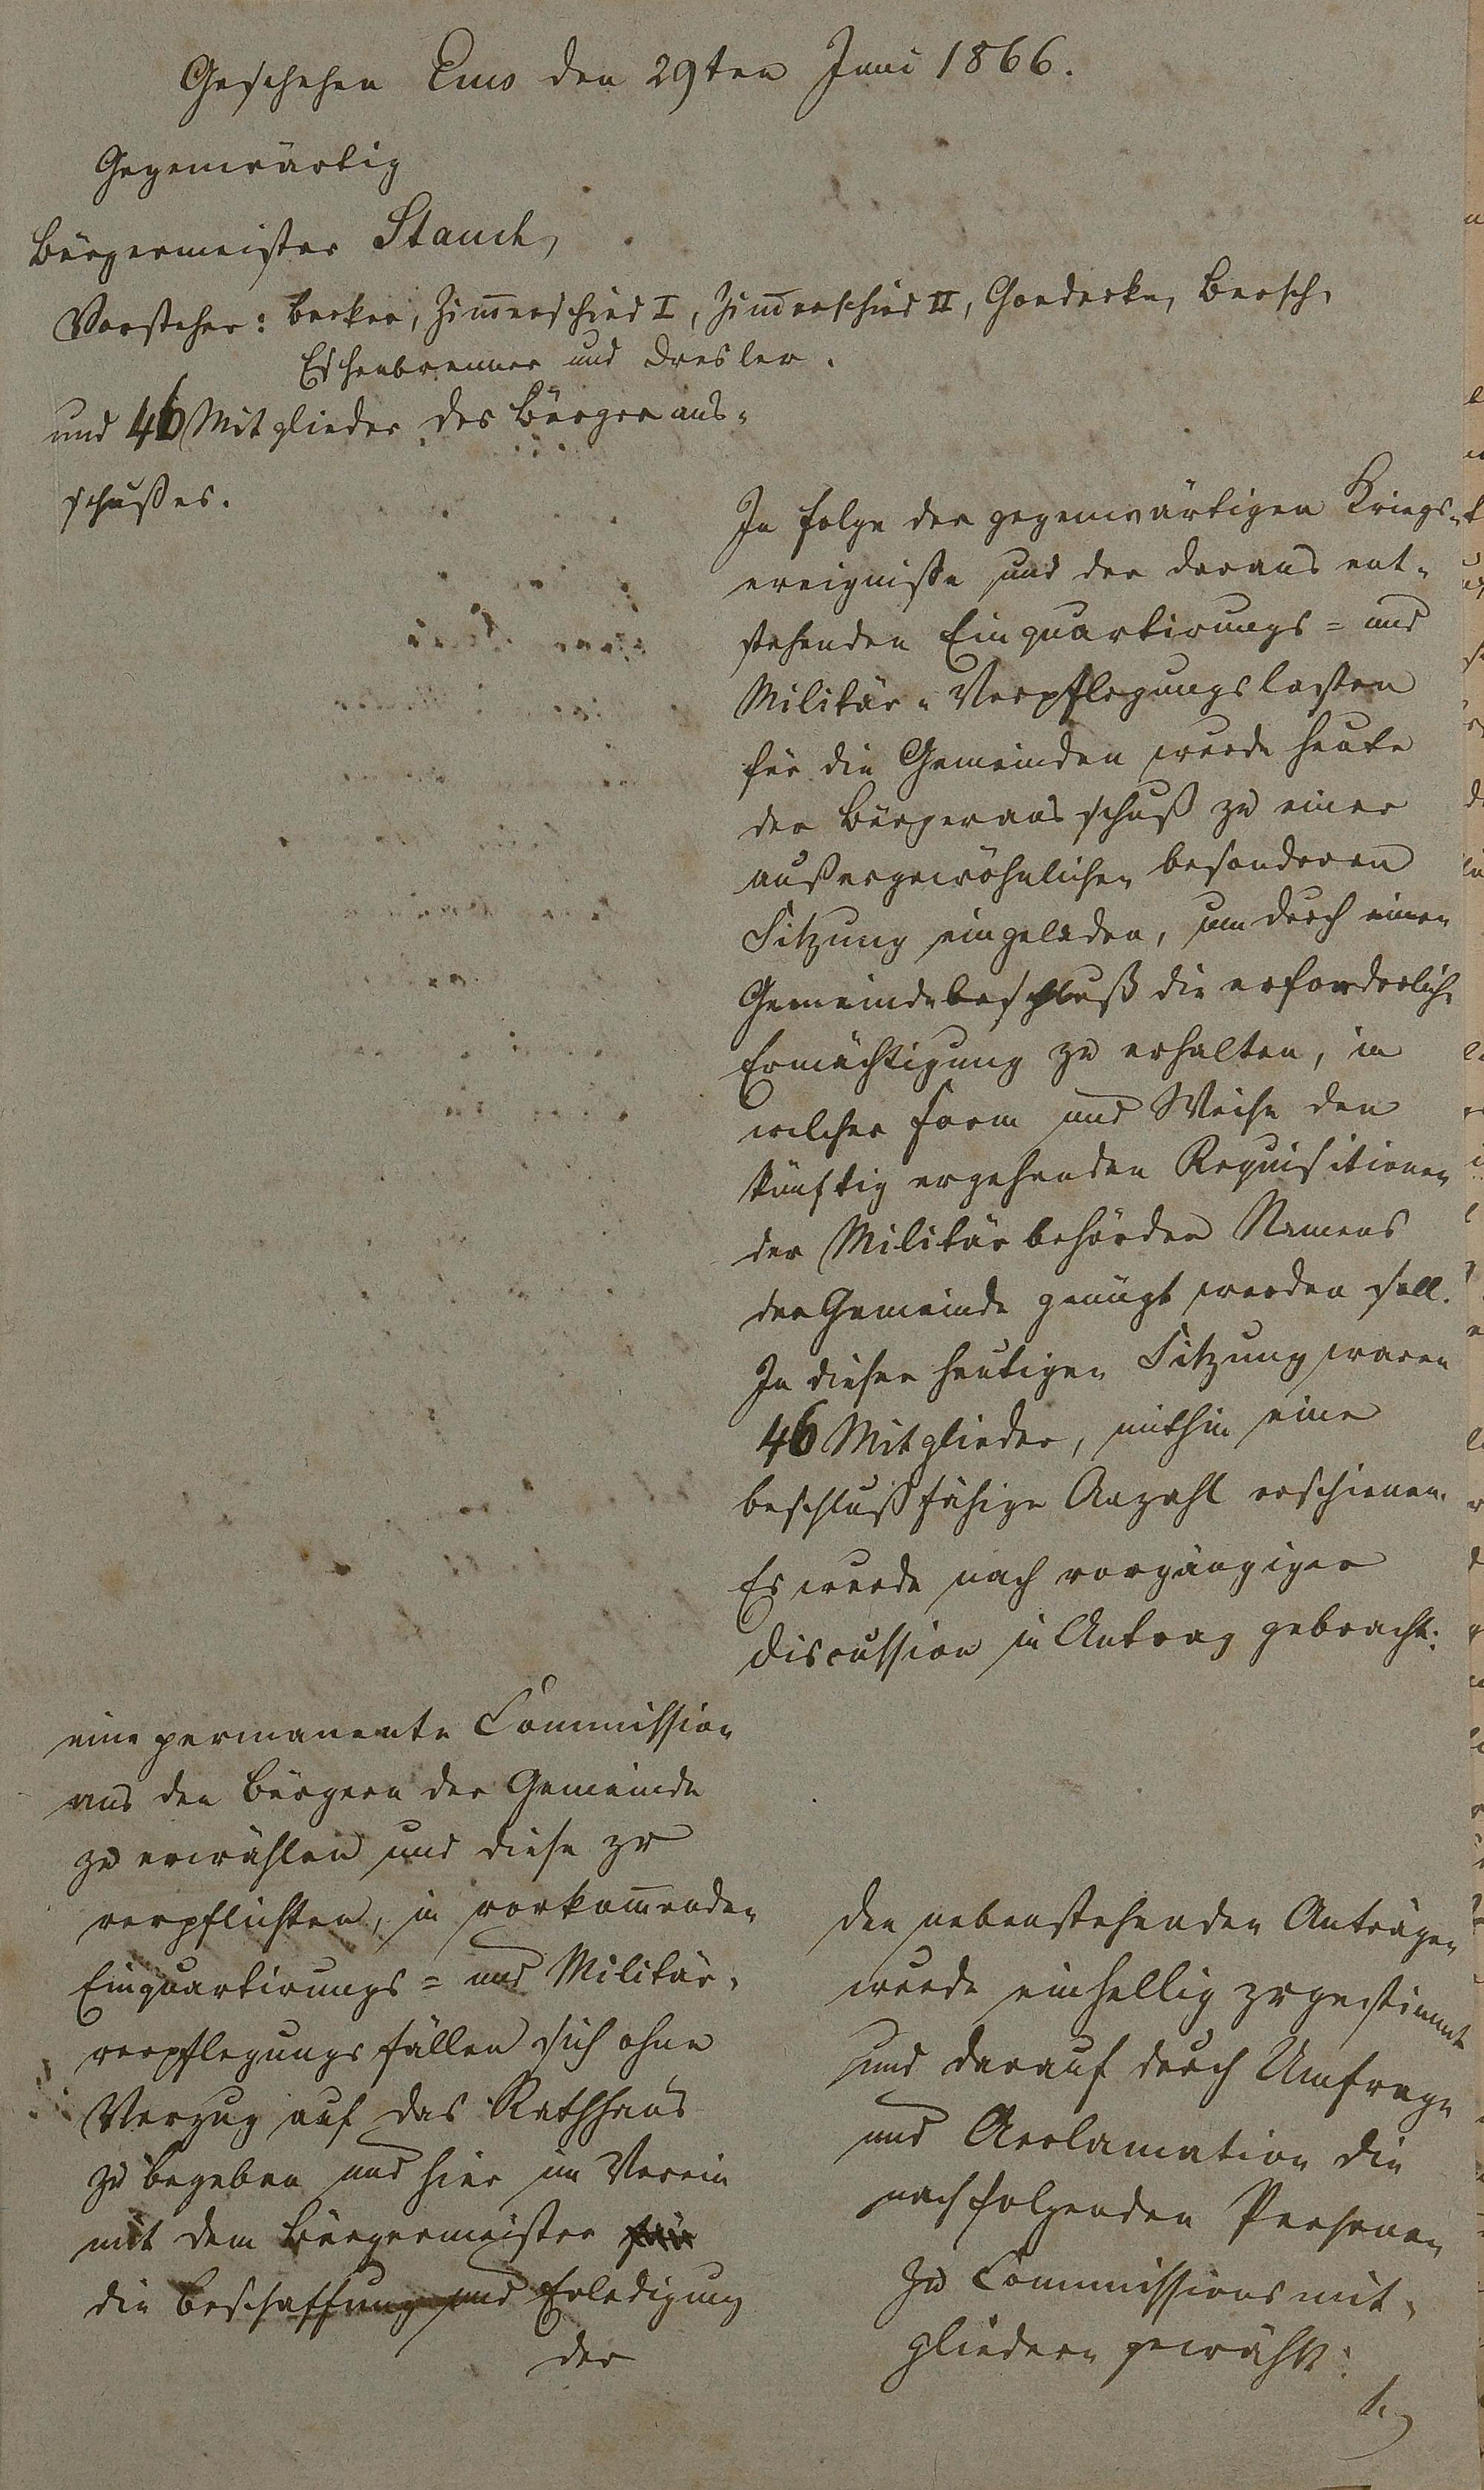 Geschehen Ems den 29ten Juni 1866.
Gegenwärtig
Bürgermeister Stauch,
Vorsteher: Becker, Zim̅erschied I, Zim̅erschied II, Goedecke, Bersch,
Eschenbrenner und Dresler.
und 46 Mitglieder des Bürgeraus-
schußes.
In Folge der gegenwärtigen Kriegs-
ereigniße und der daraus ent-
stehenden Einquartirungs= und
Militär-Verpflegungslasten
für die Gemeinden wurde heute
der Bürgerausschuß zu einer
außergewöhnlichen besonderen
Sitzung eingeladen, um durch einen
Gemeindebeschluß die erforderliche
Ermächtigung zu erhalten, in
welcher Form und Weise den
künftig ergehenden Requisitionen
der Militärbehörden Namens
der Gemeinde genügt werden soll.
In dieser heutigen Sitzung waren
46 Mitglieder, mithin eine
beschlußfähige Anzahl erschienen.
Es wurde nach vorgängiger
Discussion in Antrag gebracht:
eine permanente Commission
aus den Bürgern der Gemeinde
zu erwählen und diese zu
verpflichten, in vorkom̅enden
Einquartirungs= und Militär-
verpflegungsfällen sich ohne
Verzug auf das Rathhaus
zu begeben und hier im Verein
mit dem Bürgermeister für
die Beschaffung und Erledigung
der
den nebenstehenden Anträgen
wurde einhellig zugestimmt
und darauf durch Umfrage
und Acclamation die
nachfolgenden Personen
zu Commissionsmit-
gliedern gewählt: